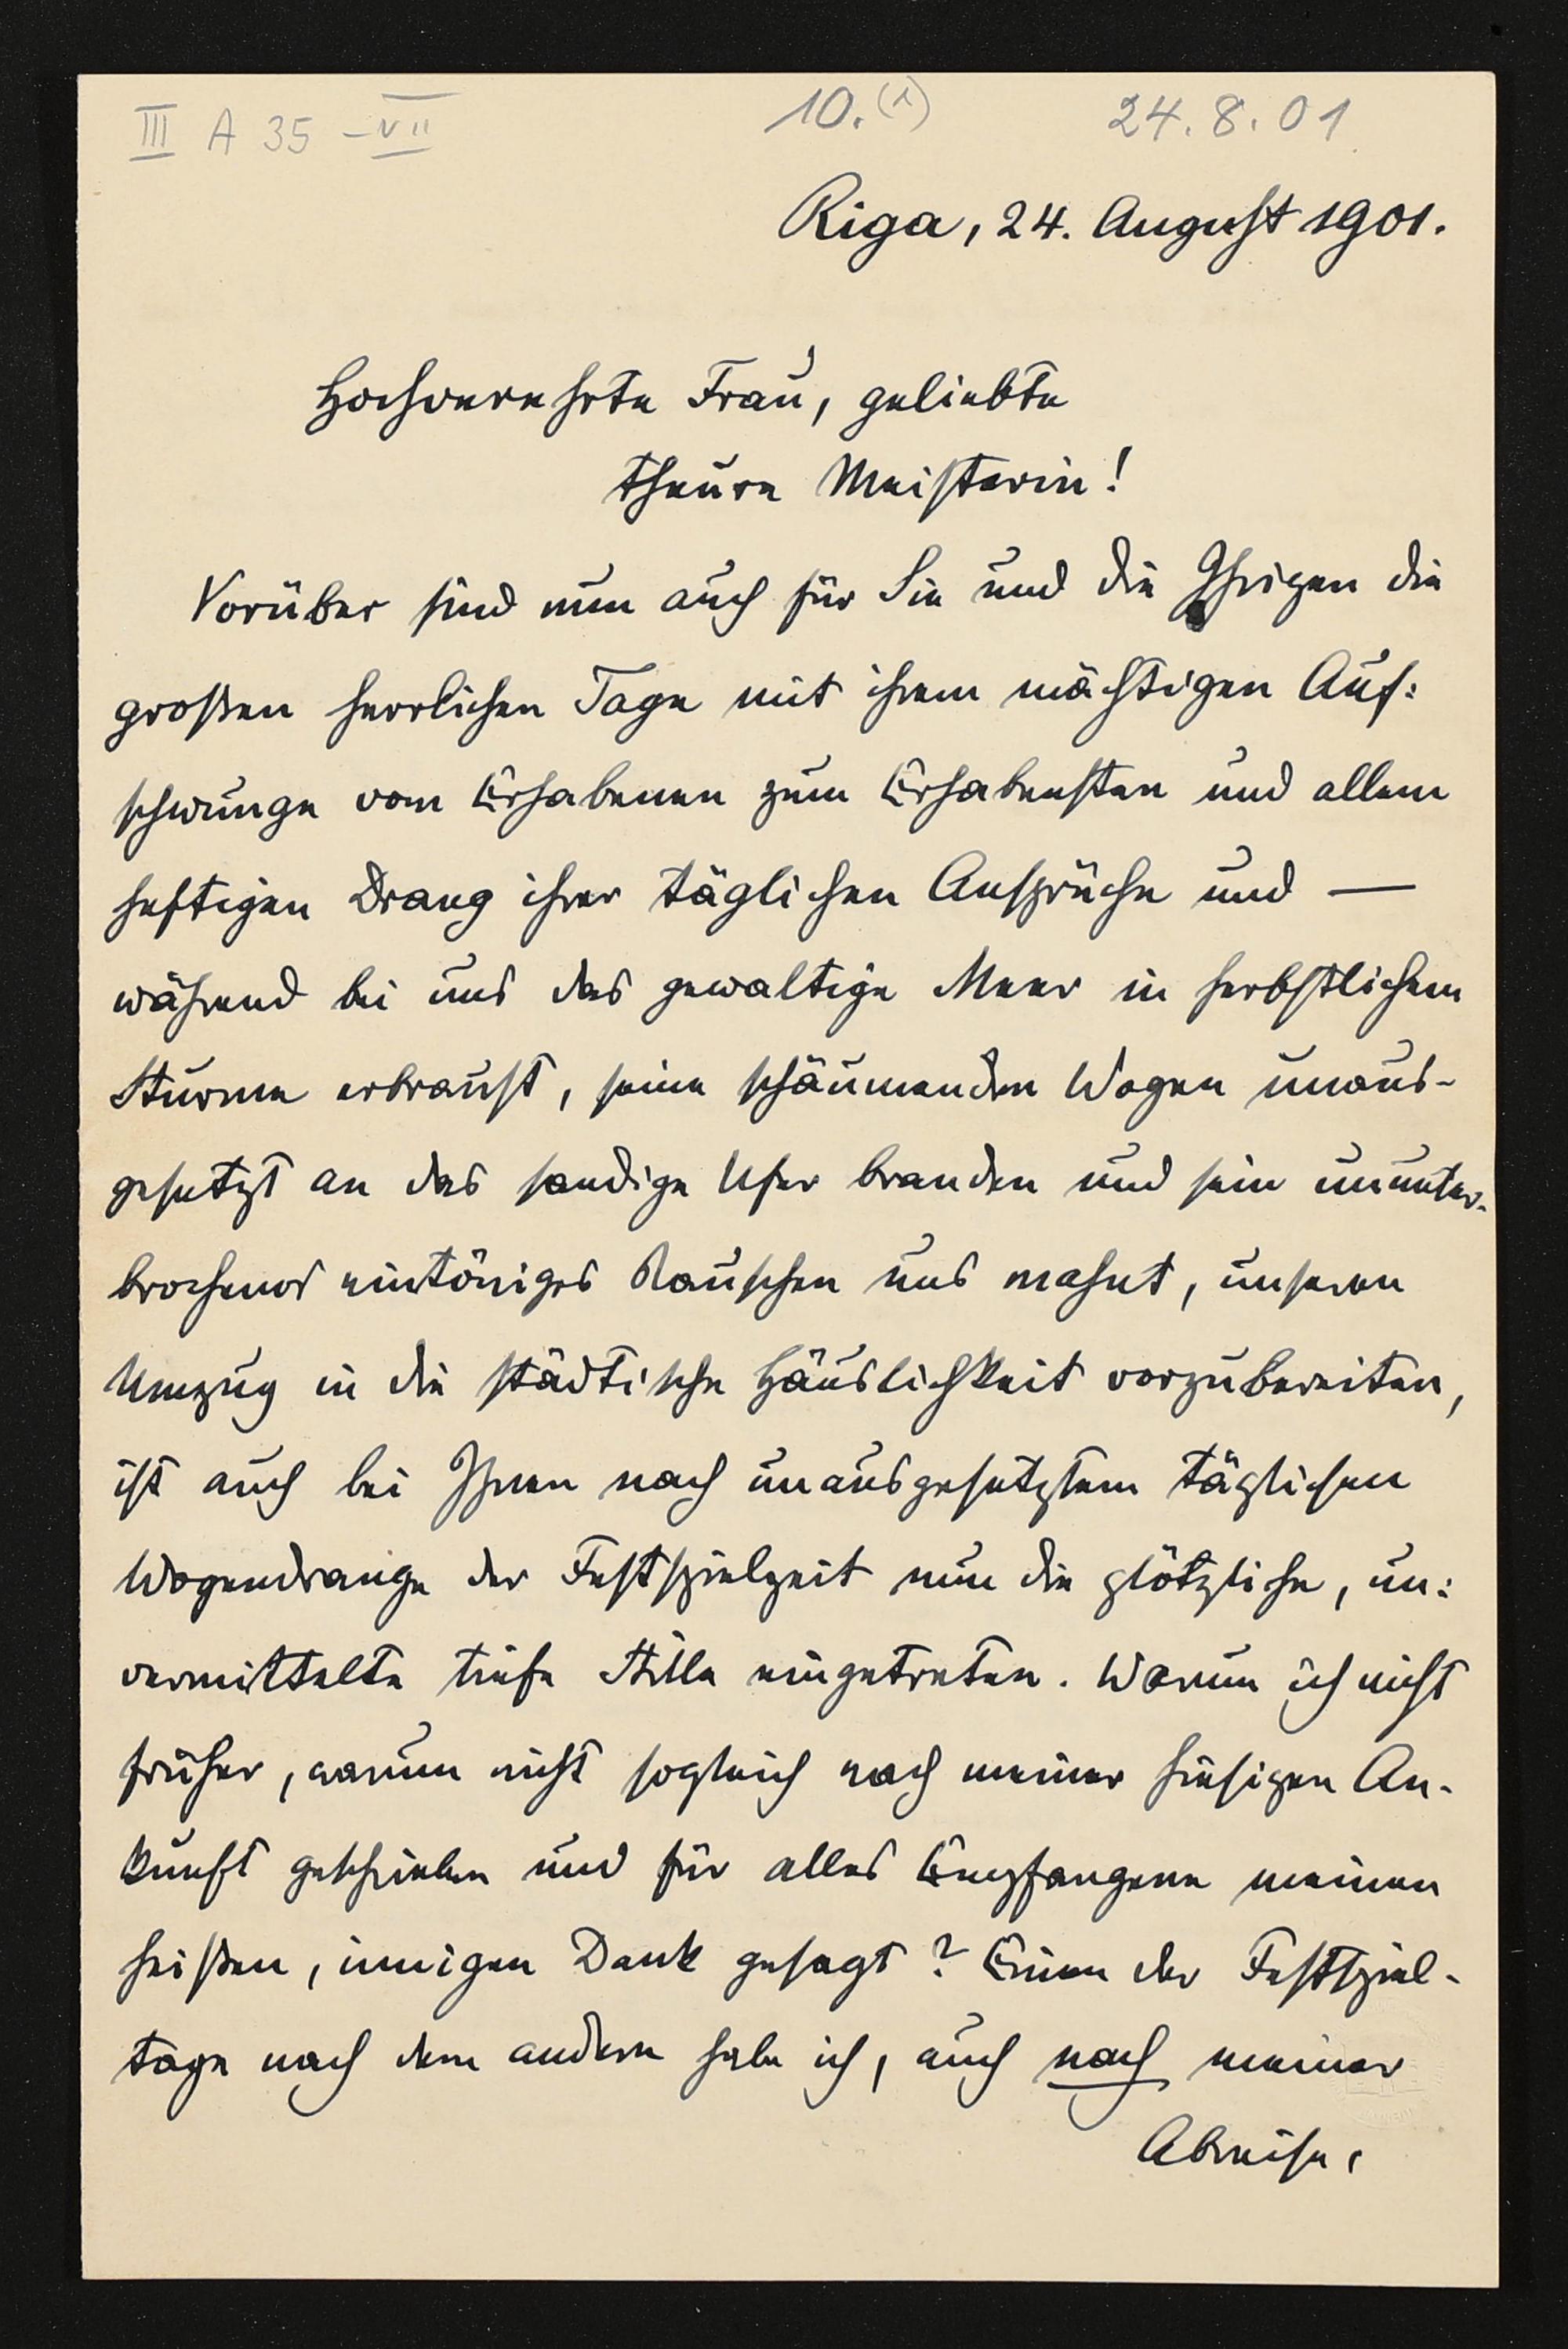 III A 35 - VII
10. (1)
24. 8. 01
Riga, 24. August 1901.
Hochverehrte Frau, geliebte
theure Meisterin!
Vorüber sind nun auch für Sie und die Ihrigen die
großen herrlichen Tage mit ihrem mächtigen Auf:
schwunge vom Erhabenen zum Erhabensten und allem
heftigen Drang ihrer täglichen Ansprüche und —
während bei uns das gewaltige Meer in herbstlichem
Sturme erbraust, seine schäumenden Wogen unaus-
gesetzt an das sandige Ufer branden und sein ununter-
brochenes eintöniges Rauschen uns mahnt, unseren
Umzug in die städtische Häuslichkeit vorzubereiten,
ist auch bei Ihnen nach unausgesetztem täglichen
Wogendrange der Festspielzeit nun die plötzliche, un:
vermittelte tiefe Stille eingetreten. Warum ich nicht
früher, warum nicht sogleich nach meiner hiesigen An-
kunft geschrieben und für alles Empfangene meinen
heißen, innigen Dank gesagt? Einen der Festspiel-
tage nach dem andern habe ich, auch nach meiner
Abreise,